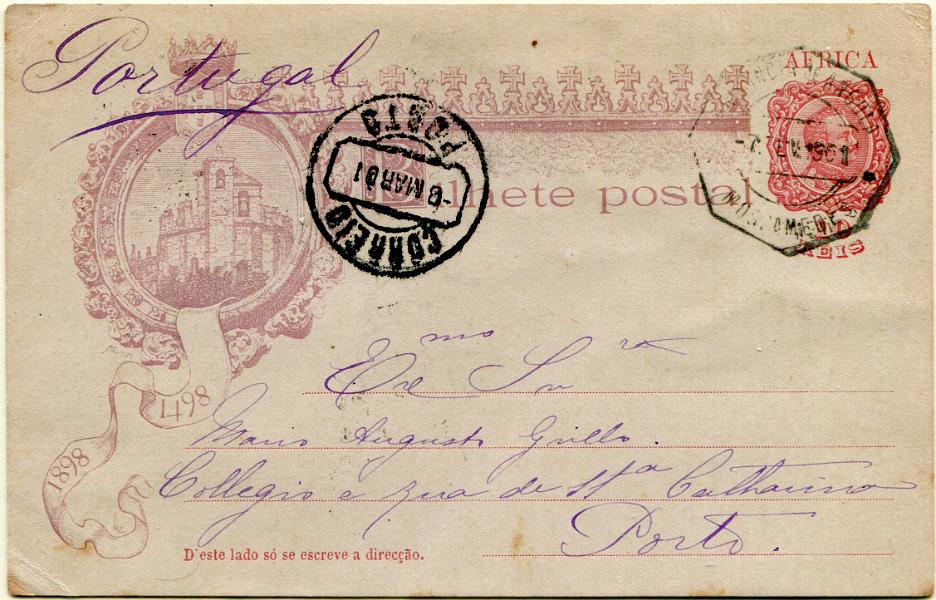 Portugal
AFRICA
CORREIO
-8 MAR 01
POSTO
MOSSAMEDES
Bilhete postal
10
REIS
1498
1898
Exmo Snr
Mario Augusto Grillo.
Collegio a rua de Sta Catharina
Porto.
D'este lado só se escreve a direcção.